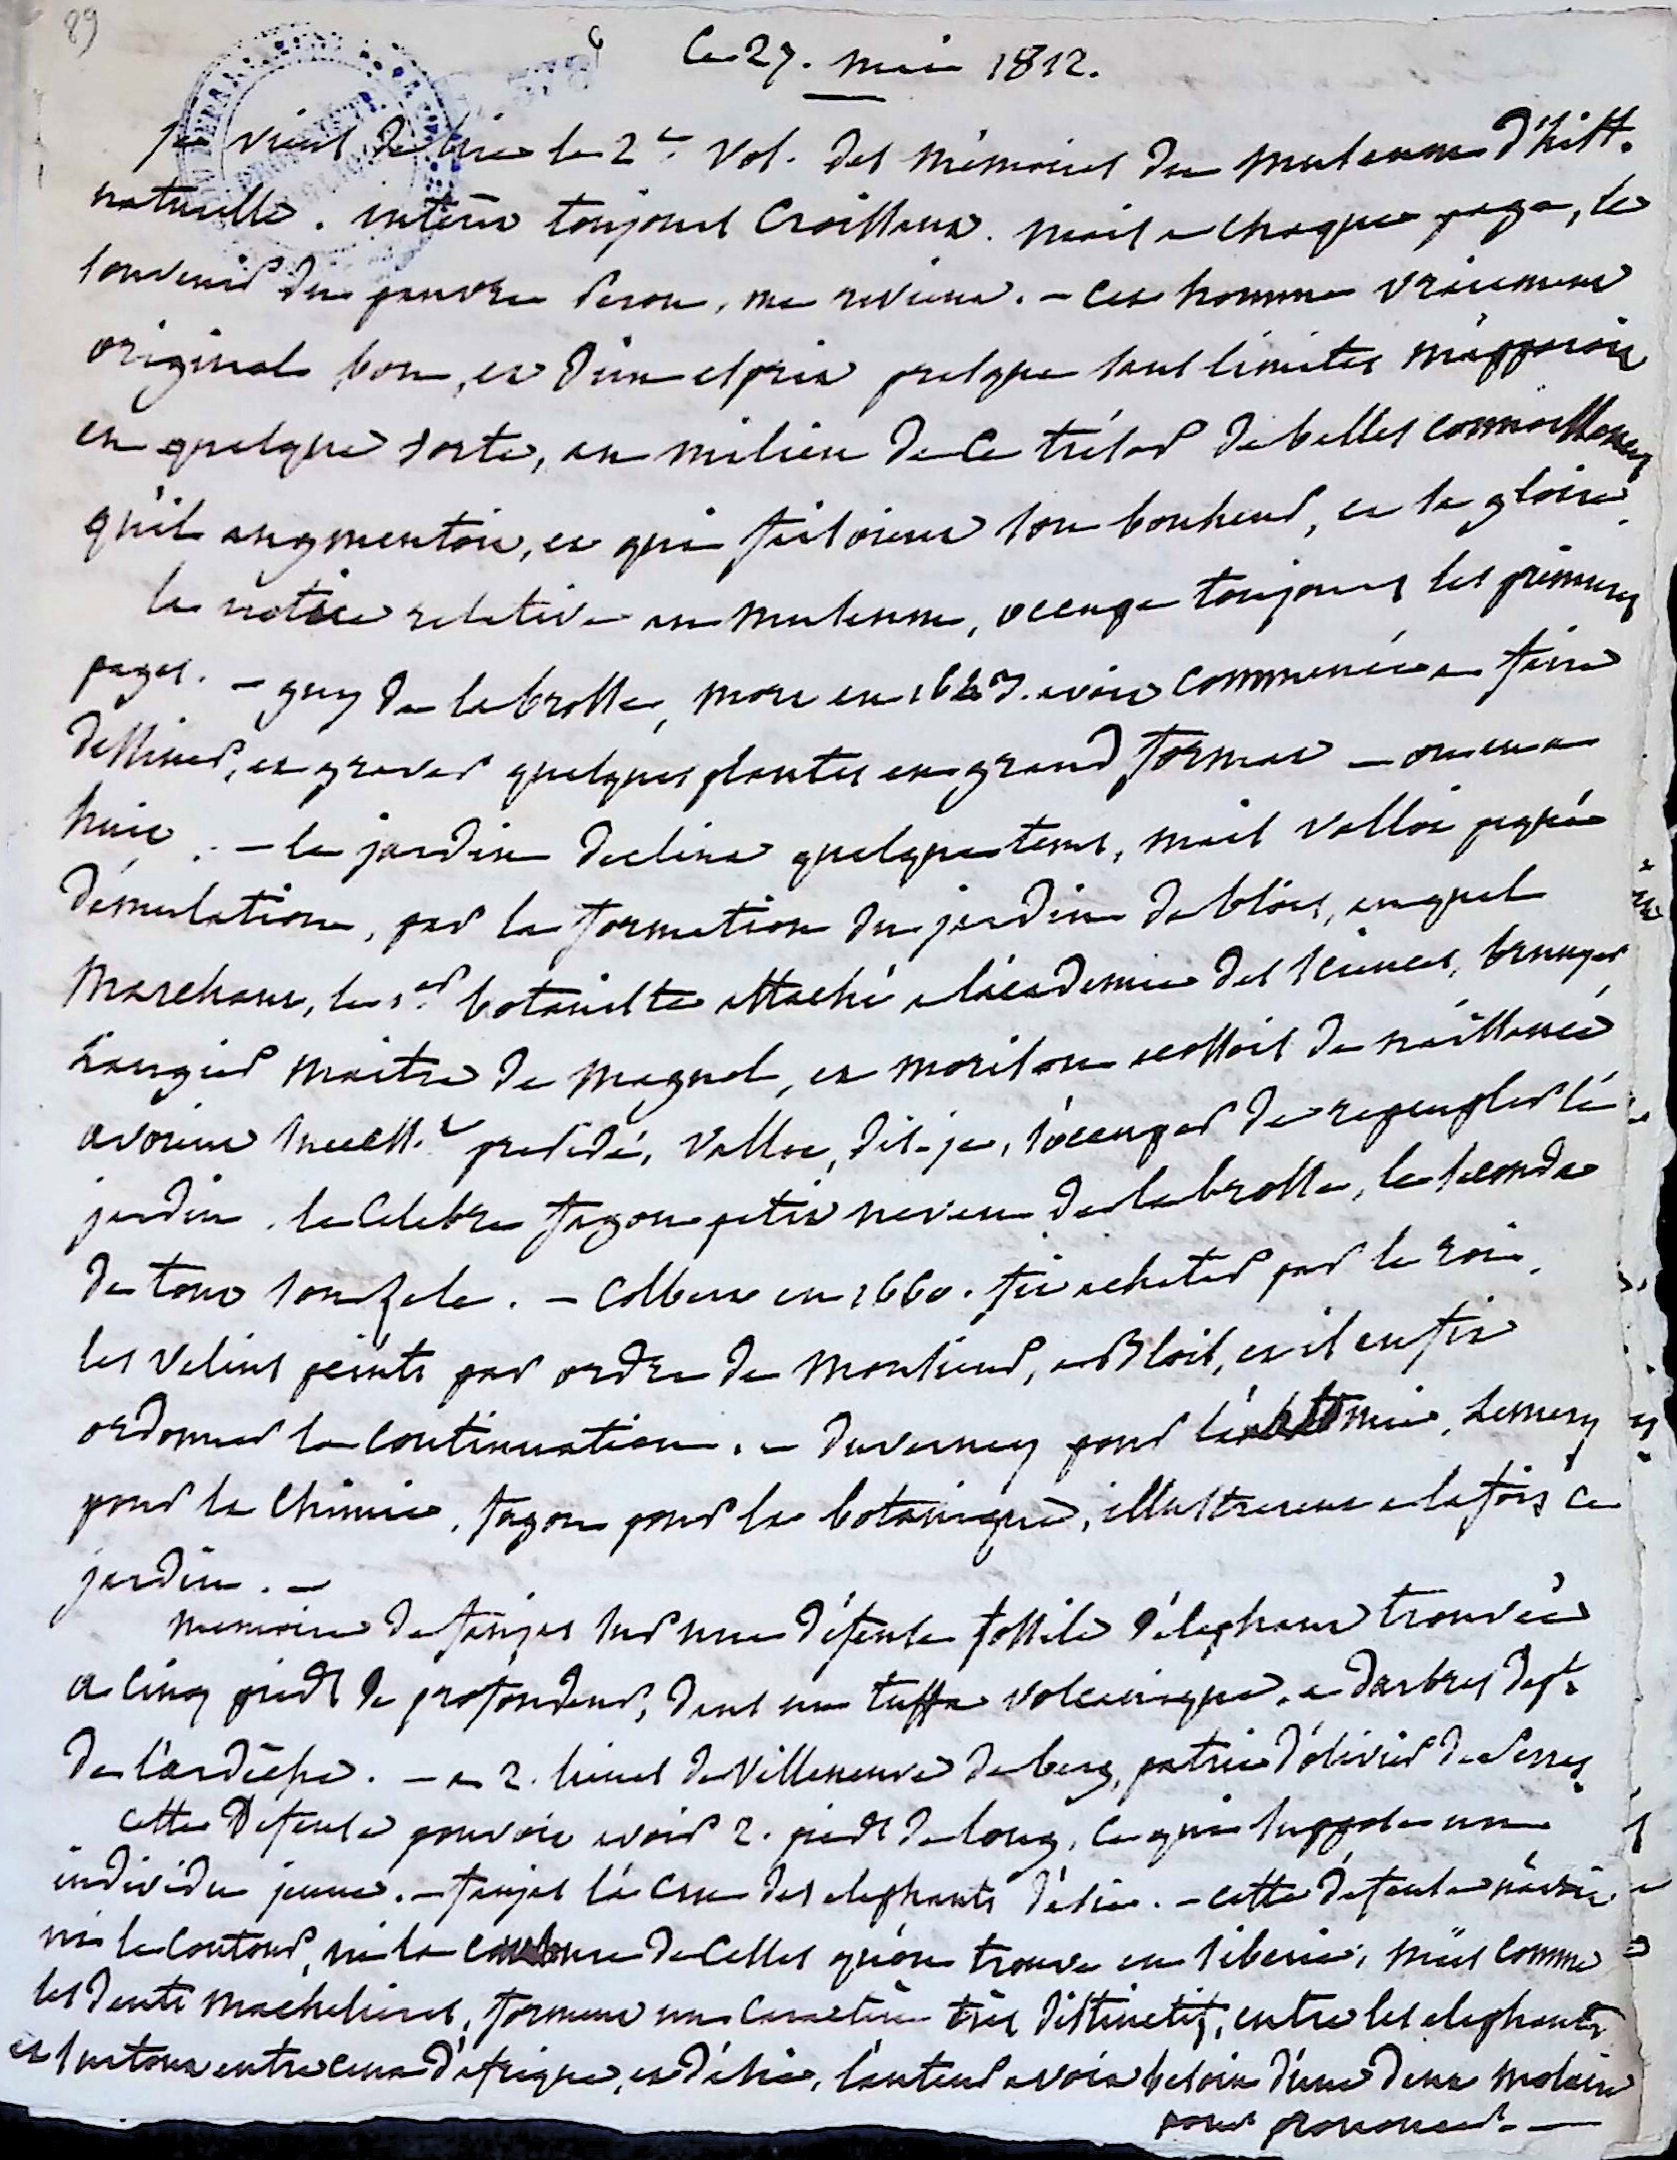 89
Ce 27. mai 1812.
Je viens de lire le 2e. vol. des mémoires du museum d'hist.
naturelle. intérêt toujours croissant. mais a chaque page, le
souvenir du pauvre peron, me revient. — cet homme vraiment
original bon, et d'un esprit presque sans limites m'apparoit
en quelque sorte, au milieu de ce trésor de belles connoissances
qu'il augmentoit, et qui faisoient son bonheur, et sa gloire.
la notice relative au museum, occupe toujours les premieres
pages. — guy de la brosse, mort en 1643. avoit commencé a faire
dessiner, et graver quelques plantes en grand format — on en a
huit. — le jardin declina quelque tems, mais vallot piqué
d'émulation, par la formation du jardin de blois, auquel
Marchant, le 1er botaniste attaché a l'academie des sciences, brunyer,
Laugier maitre de magnol, et morison ecossois de naissance
avoient success.t presidé, vallot, dis-je, s'occupa de repeupler le
jardin. le celebre fagon petit neveu de la brosse, le seconda
de tout son zele. — Colbert en 1660. fit acheter par le roi,
les velins peints par ordre de Monsieur, a Blois, et il en fit
ordonner la continuation. — duverney pour l'anatomie, Lemery
pour la chimie, fagon pour la botanique, illustrerent a la fois ce
jardin. —
memoire de faujas sur une défense fossile d'elephant trouvée
a cinq pieds de profondeur, dans un tuffa volcanique, a darbres dept.
de l'ardèche. — a 2. lieues de villeneuve de berg, patrie d'olivier de serres.
cette défense pouvoit avoir 2. pieds de long, ce qui suppose un
individu jeune. — faujas l'a crue des elephants d'asie. — cette défense n'avoit
ni le contour, ni la courbure de celles qu'on trouve en siberie, mais comme
les dents machelieres, forment un caractère très distinctif, entre les elephants,
et surtout entre ceux d'afrique, et d'asie, l'auteur avoit besoin d'une dent molaire
pour prononcer. —